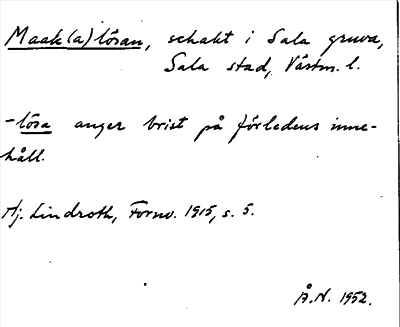 Maak(a)lösan, schakt i Sala gruva,
Sala stad, Västm. l.
-lösa anger brist på förledens inne-
håll.
Hj. Lindroth, Fornv. 1915, s. 5.
Å.N. 1952.